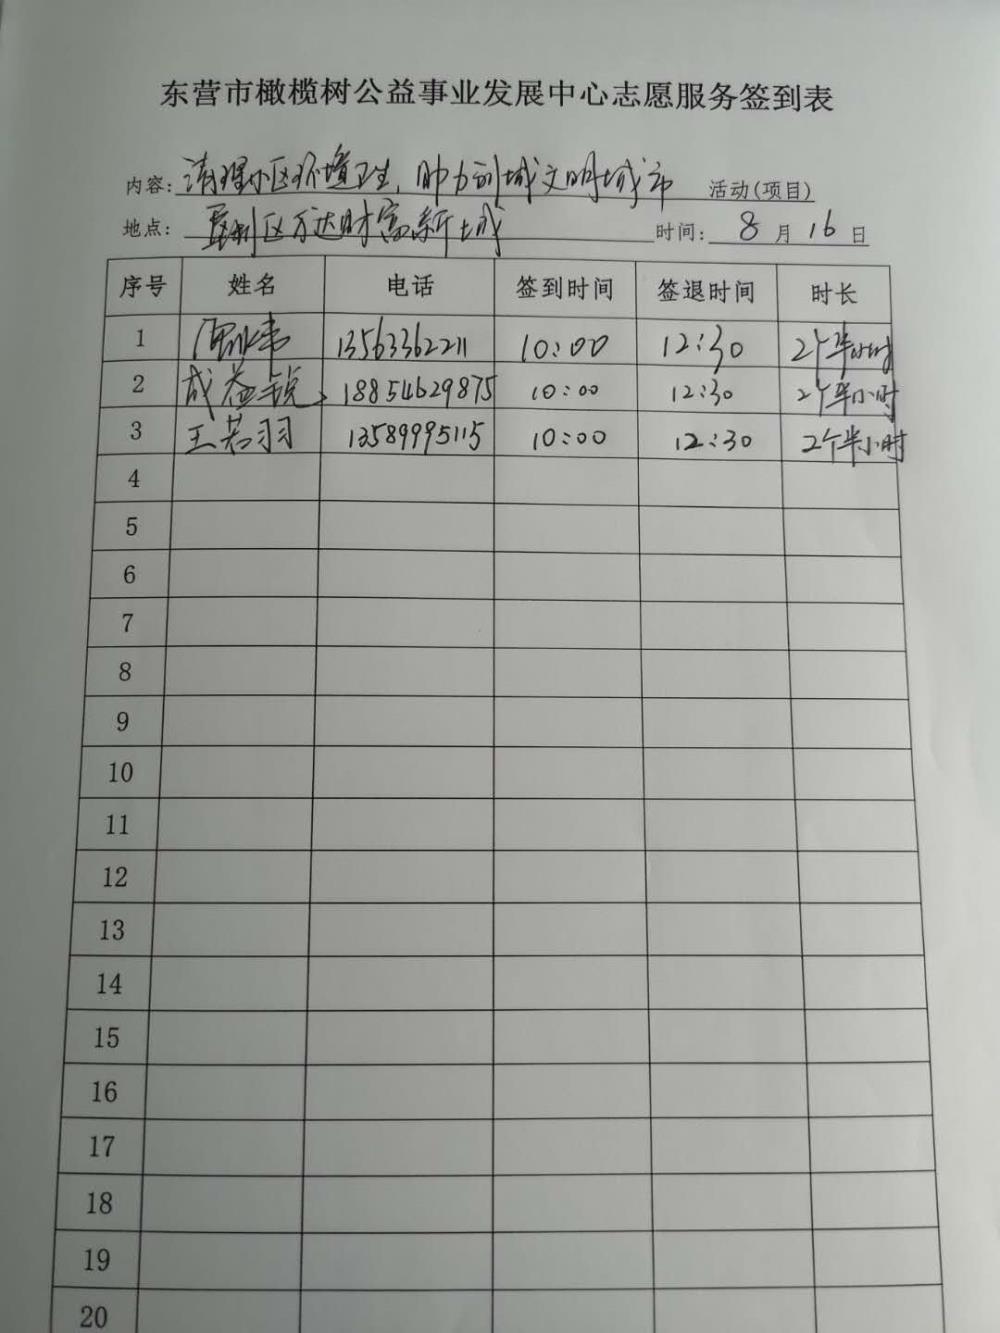 东营市橄榄树公益事业发展中心志愿服务签到表
内容: 清理小区环境卫生，助力创城文明城市 活动(项目)
地点: 垦利区万达财富新城 时间: 8 月 16 日
序号 姓名 电话 签到时间 签退时间 时长
1 13563362211 10:00 12:30 2个半小时
2 成益锐 18854629875 10:00 12:30 2个半小时
3 王若羽 13589995115 10:00 12:30 2个半小时
4
5
6
7
8
9
10
11
12
13
14
15
16
17
18
19
20